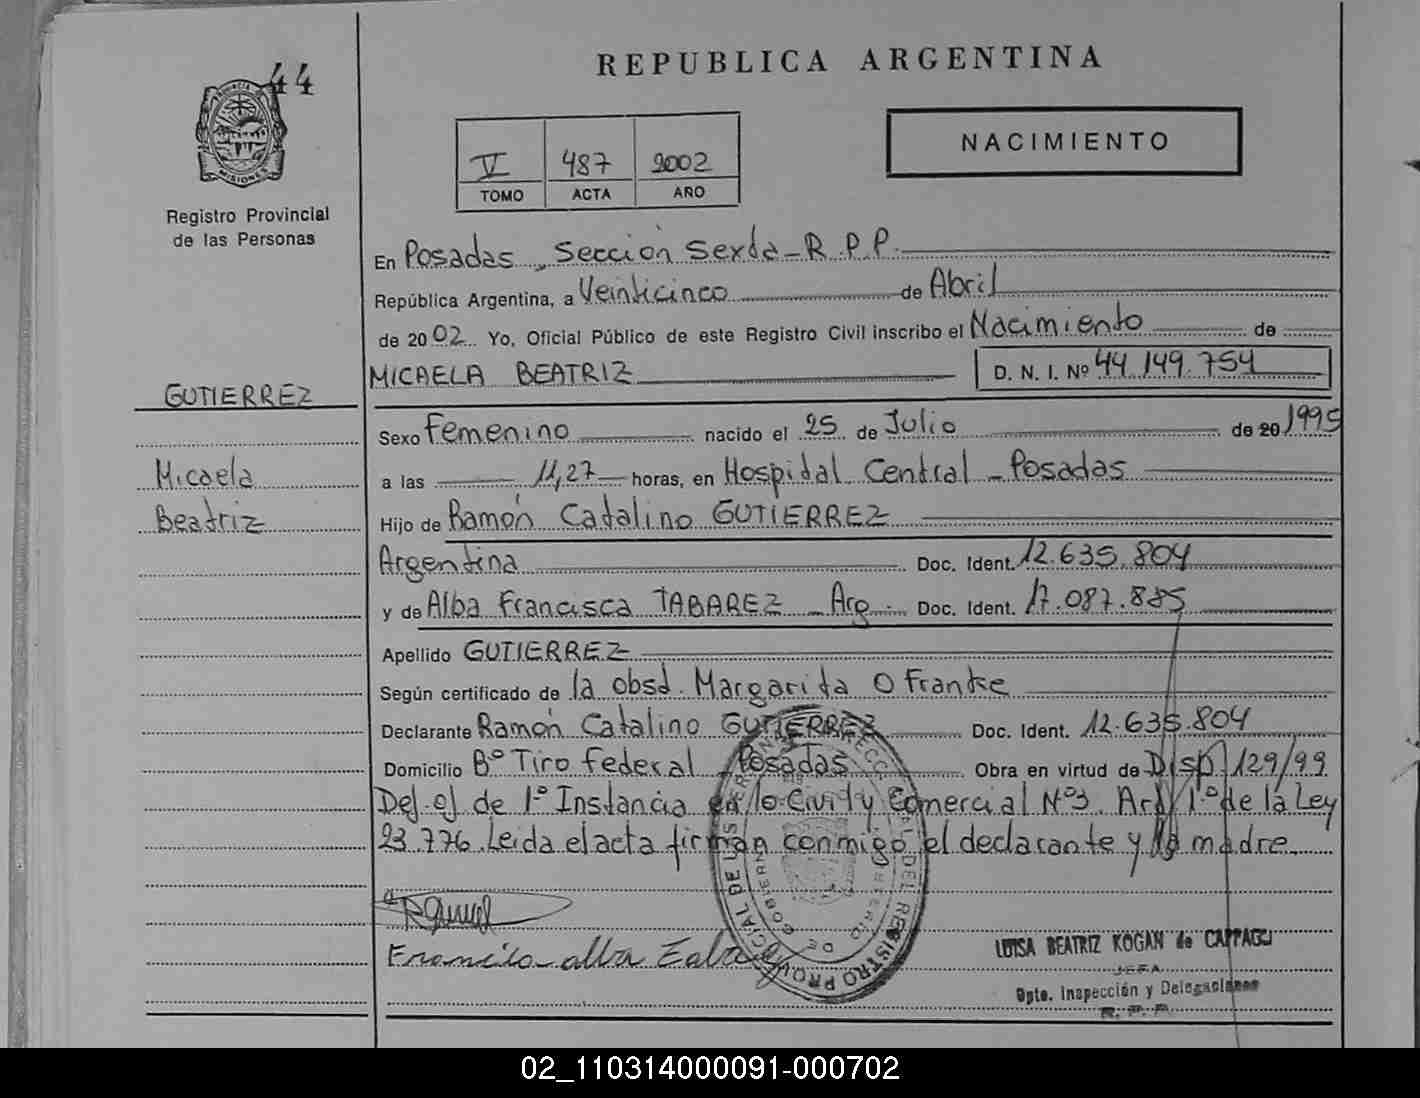 44
REPUBLICA ARGENTINA
NACIMIENTO
V 487 2002
TOMO ACTA AÑO
MISIONES
Registro Provincial
de las Personas
En Posadas, Sección Sexta - R.P.P.
República Argentina, a Veinticinco de Abril
de 2002. Yo, Oficial Público de este Registro Civil inscribo el Nacimiento de
MICAELA BEATRIZ D. N. I. Nº 44.149.754
GUTIERREZ
Sexo Femenino nacido el 25 de Julio de 20 1995
Micaela
a las 11,27 horas, en Hospital Central - Posadas
Beatriz
Hijo de Ramón Catalino GUTIERREZ
Argentina Doc. Ident. 12.635.804
y de Alba Francisca TABAREZ - Arg. Doc. Ident. 17.087.885
Apellido GUTIERREZ
Según certificado de la obst. Margarita O Franke
Declarante Ramón Catalino GUTIERREZ Doc. Ident. 12.635.804
Domicilio Bº Tiro Federal - Posadas Obra en virtud de Disp. 129/99
Del. ej de 1º Instancia en lo Civil y Comercial Nº3. Art. 1º de la Ley
23.776. Leida el acta firman conmigo el declarante y la madre.
LUISA BEATRIZ KOGAN de CAPPAGLI
JEFA
Dpto. Inspección y Delegaciones
R. P. P.
02_110314000091-000702